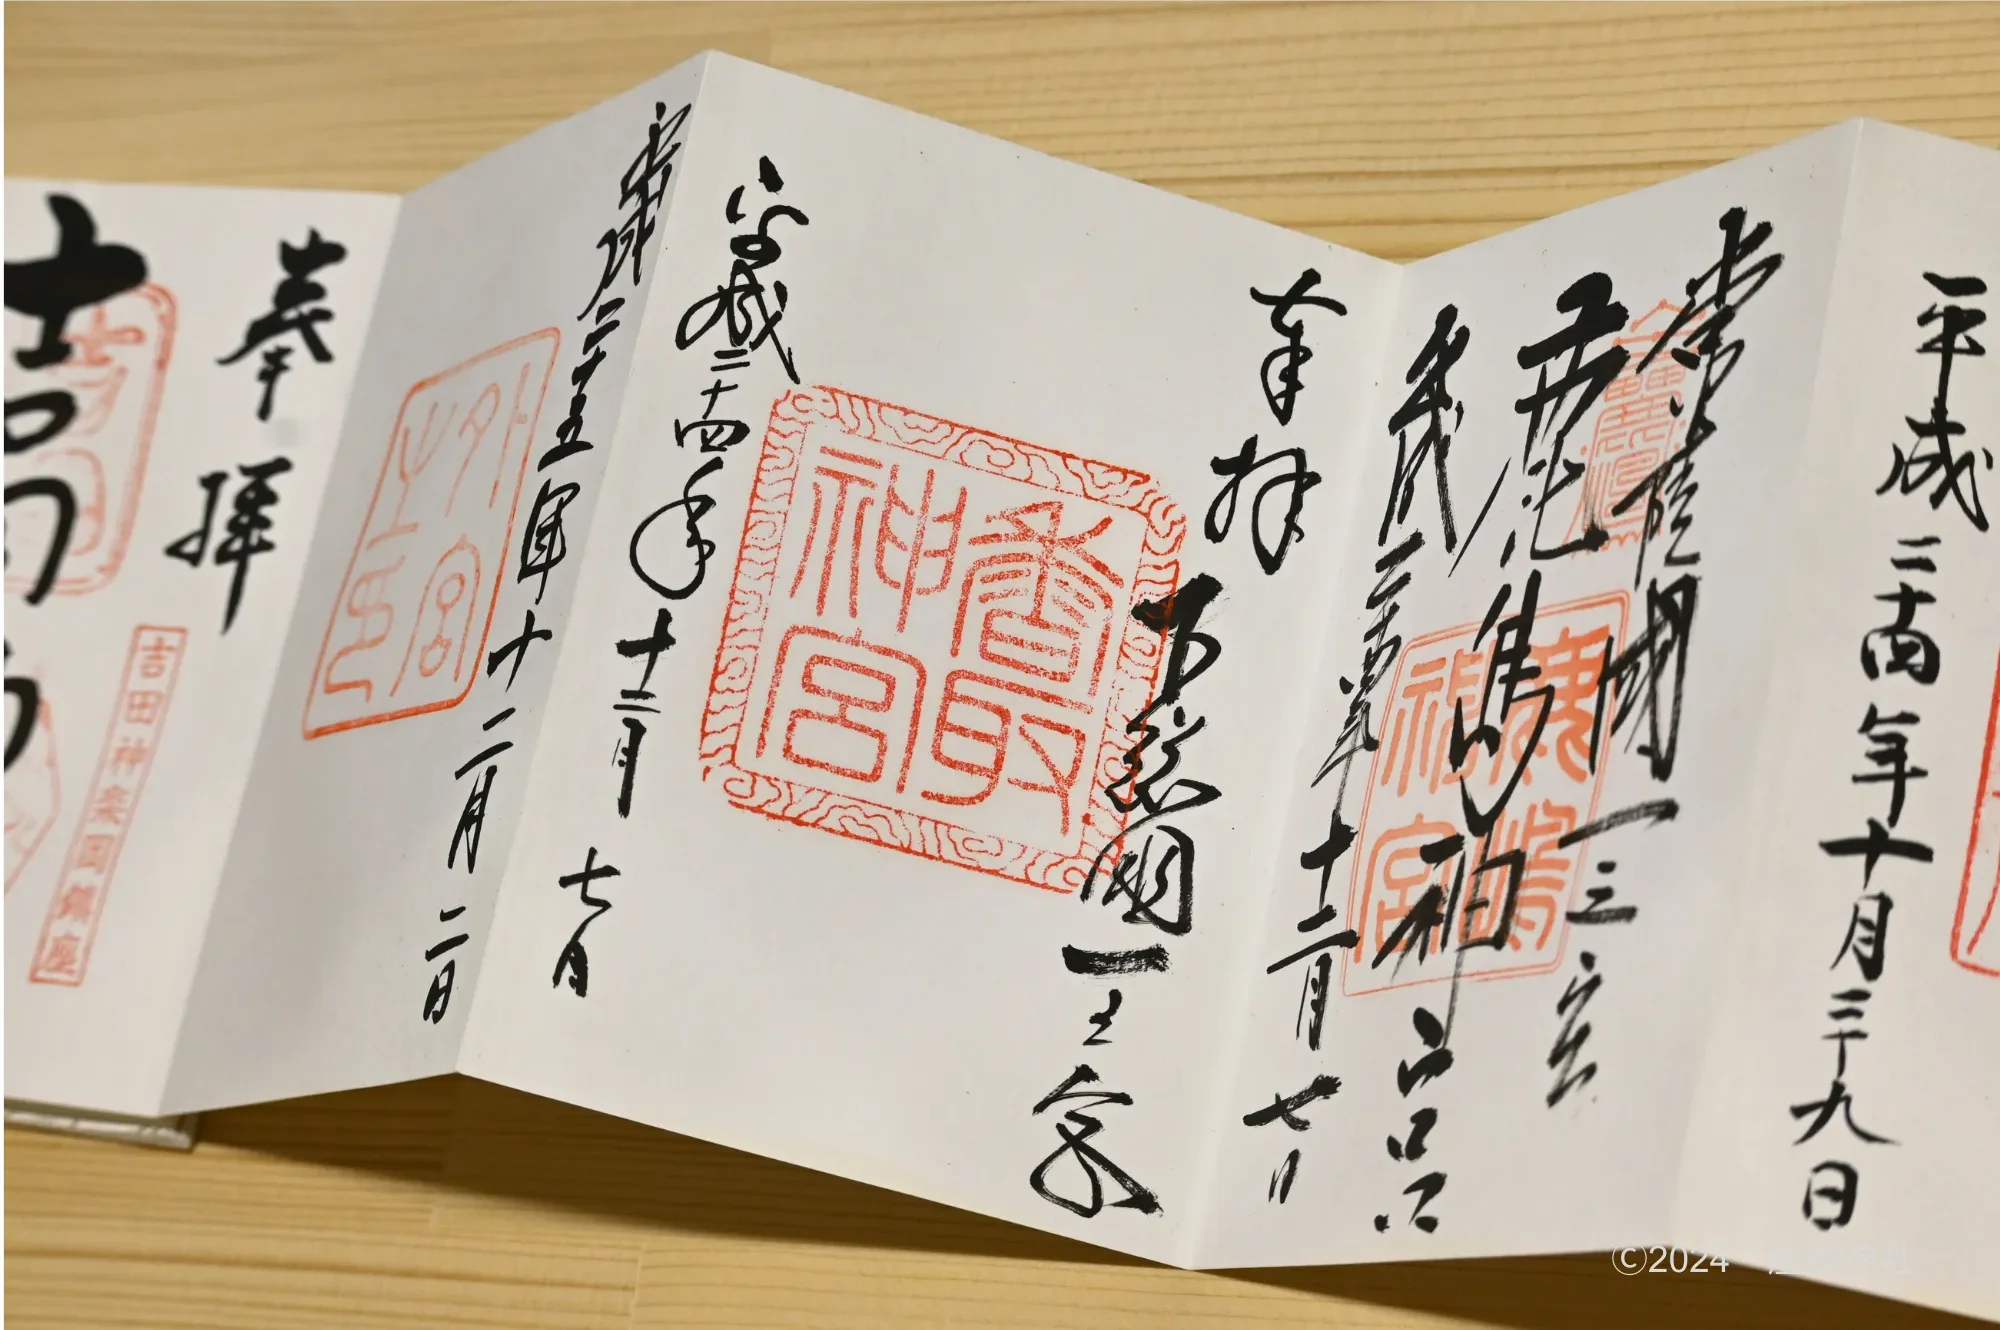 平成二十四年十月二十九日
常陸國一之宮
鹿島神宮
平成二十四年十二月七日
鹿嶋神宮
奉拝
下総國一之宮
香取神宮
平成二十四年十二月七日
平成二十五年十二月二日
外宮之印
奉拝
吉田神楽岡鎮座
吉田
©2024